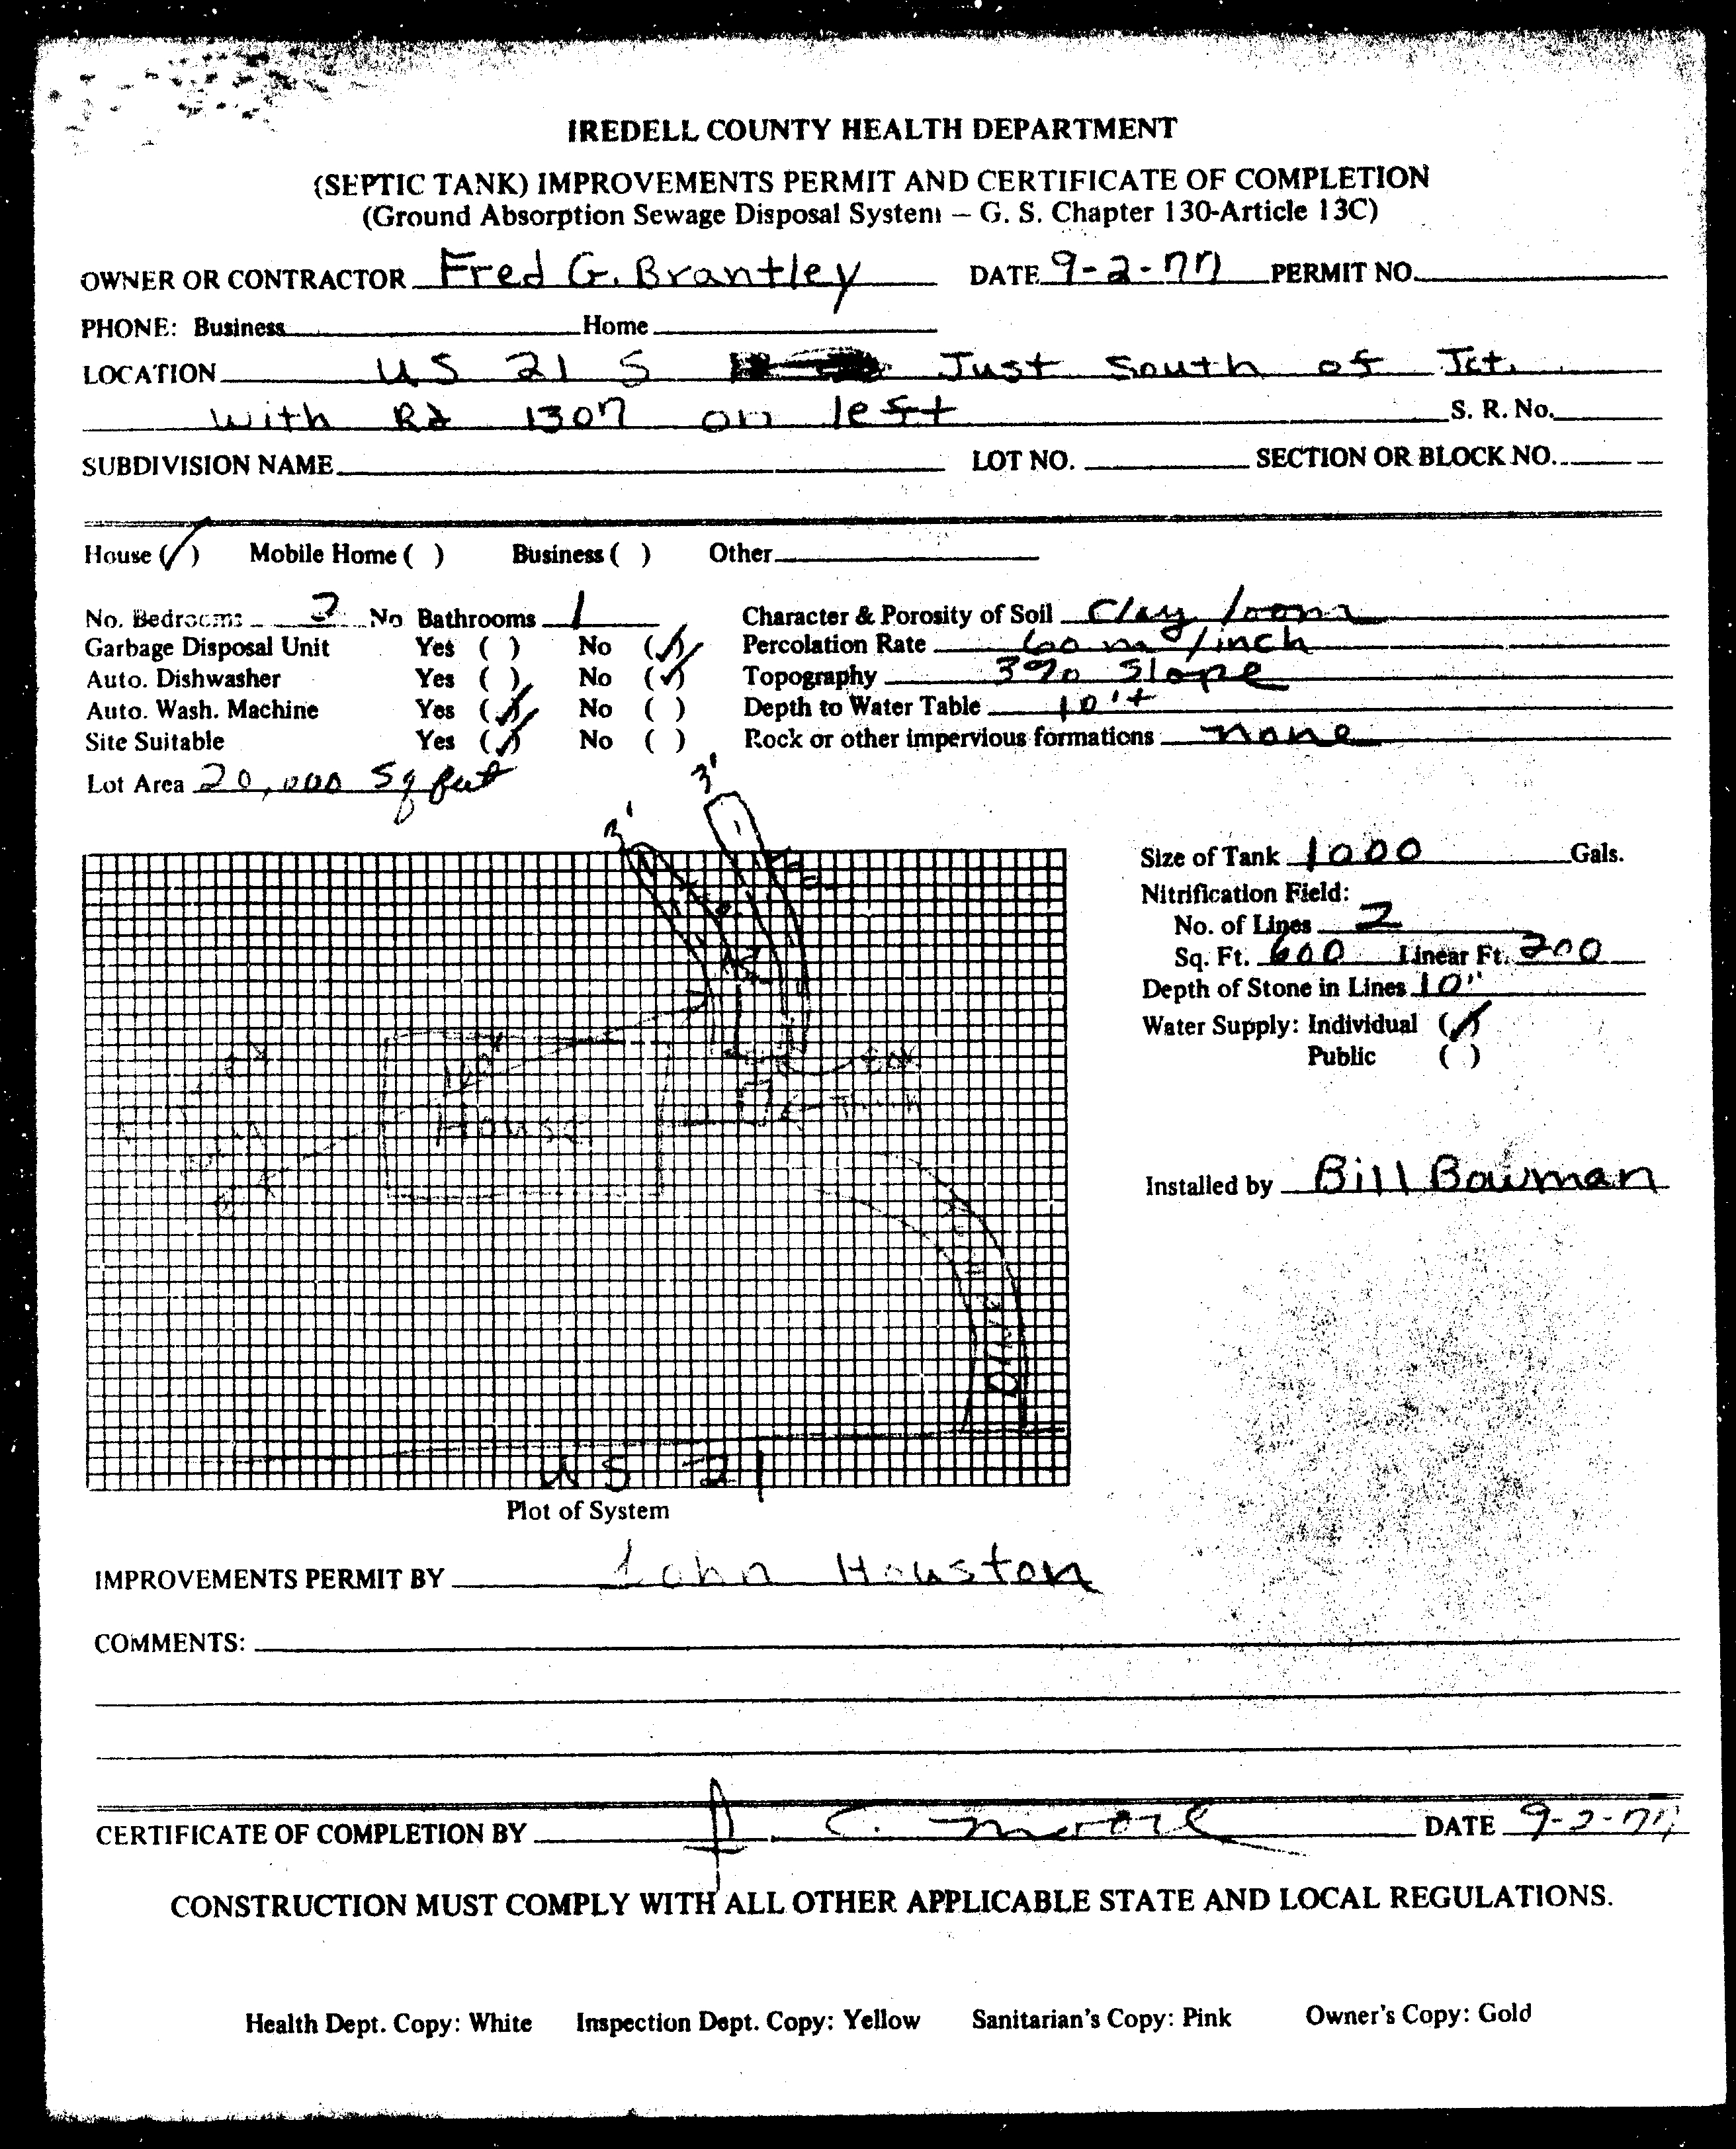 IREDELL COUNTY HEALTH DEPARTMENT
(SEPTIC TANK) IMPROVEMENTS PERMIT AND CERTIFICATE OF COMPLETION
(Ground Absorption Sewage Disposal System — G. S. Chapter 130-Article 13C)
OWNER OR CONTRACTOR Fred G. Brantley DATE 9-2-77 PERMIT NO.
PHONE: Business Home
LOCATION US 21 S Just South of Jct.
with Rd 1307 on left S. R. No.
SUBDIVISION NAME LOT NO. SECTION OR BLOCK NO.
House (✓) Mobile Home ( ) Business ( ) Other
No. Bedrooms No Bathrooms 1 Character & Porosity of Soil Clay loam
Garbage Disposal Unit Yes ( ) No (✓) Percolation Rate 60 m /inch
Auto. Dishwasher Yes ( ) No (✓) Topography 3% Slope
Auto. Wash. Machine Yes (✓) No ( ) Depth to Water Table 10'+
Site Suitable Yes (✓) No ( ) Rock or other impervious formations none
Lot Area 20,000 Sq feet
3' 3'
Size of Tank 1000 Gals.
Nitrification Field:
No. of Lines 2
Sq. Ft. 600 Linear Ft. 200
Depth of Stone in Lines 10"
Water Supply: Individual (✓)
Public ( )
House
Installed by Bill Bowman
Drive
US 21
Plot of System
IMPROVEMENTS PERMIT BY John Houston
COMMENTS:
CERTIFICATE OF COMPLETION BY C. Moore DATE 9-2-77
CONSTRUCTION MUST COMPLY WITH ALL OTHER APPLICABLE STATE AND LOCAL REGULATIONS.
Health Dept. Copy: White Inspection Dept. Copy: Yellow Sanitarian's Copy: Pink Owner's Copy: Gold